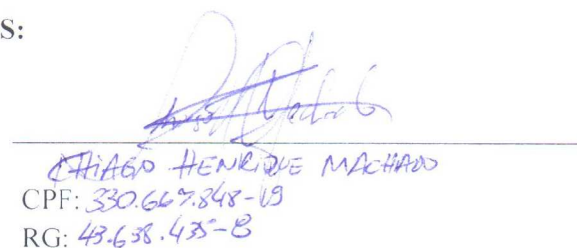 S:
THIAGO HENRIQUE MACHADO
CPF: 330.667.848-19
RG: 43.638.435-8